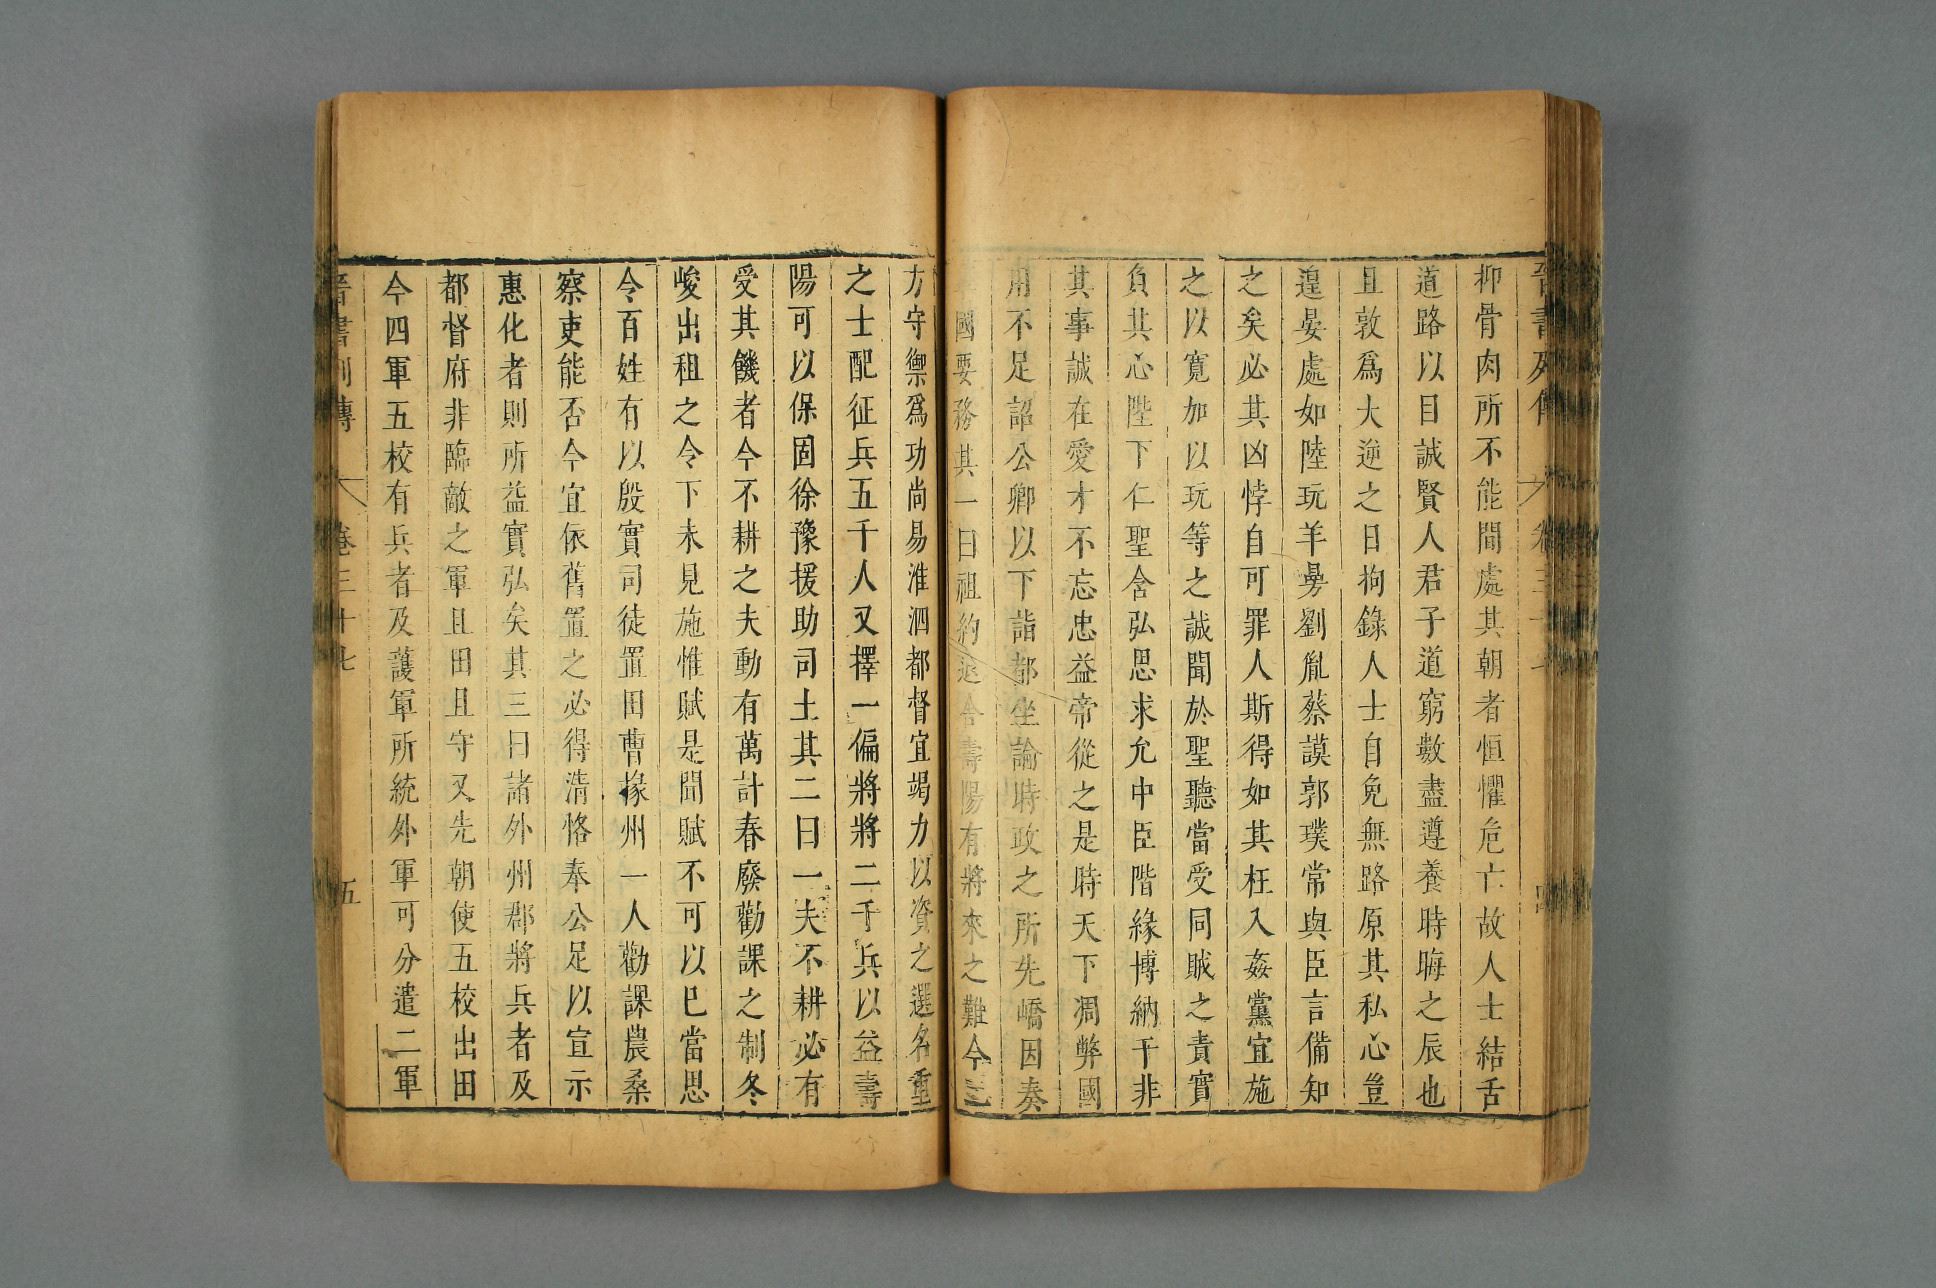 抑骨肉所不能間處其朝者恒懼危亡故人士結舌
道路以目誠賢人君子道窮數盡遵養時晦之辰也
且敦爲大逆之日拘錄人士自免無路原其私心豈
遑晏處如陸玩羊曼劉胤蔡謨郭璞常與臣言備知
之矣必其凶悖自可罪人斯得如其枉入姦黨宜施
之以寬加以玩等之誠聞於聖聽當受同賊之責實
負其心陛下仁聖含弘思求允中臣階緣博納干非
其事誠在愛才不忘忠益帝從之是時天下凋弊國
用不足詔公卿以下詣都坐論時政之所先嶠因奏
國要務其一曰祖約退舍壽陽有將來之難今二
方守禦爲功尚易淮泗都督宜竭力以資之選名重
之士配征兵五千人又擇一偏將將二千兵以益壽
陽可以保固徐豫援助司土其二曰一夫不耕必有
受其饑者今不耕之夫動有萬計春廢勸課之制冬
峻出租之令下未見施惟賦是聞賦不可以已當思
令百姓有以殷實司徒置田曹掾州一人勸課農桑
察吏能否今宜依舊置之必得清恪奉公足以宣示
惠化者則所益實弘矣其三曰諸外州郡將兵者及
都督府非臨敵之軍且田且守又先朝使五校出田
今四軍五校有兵者及護軍所統外軍可分遣二軍
晉書列傳 卷三十七 五